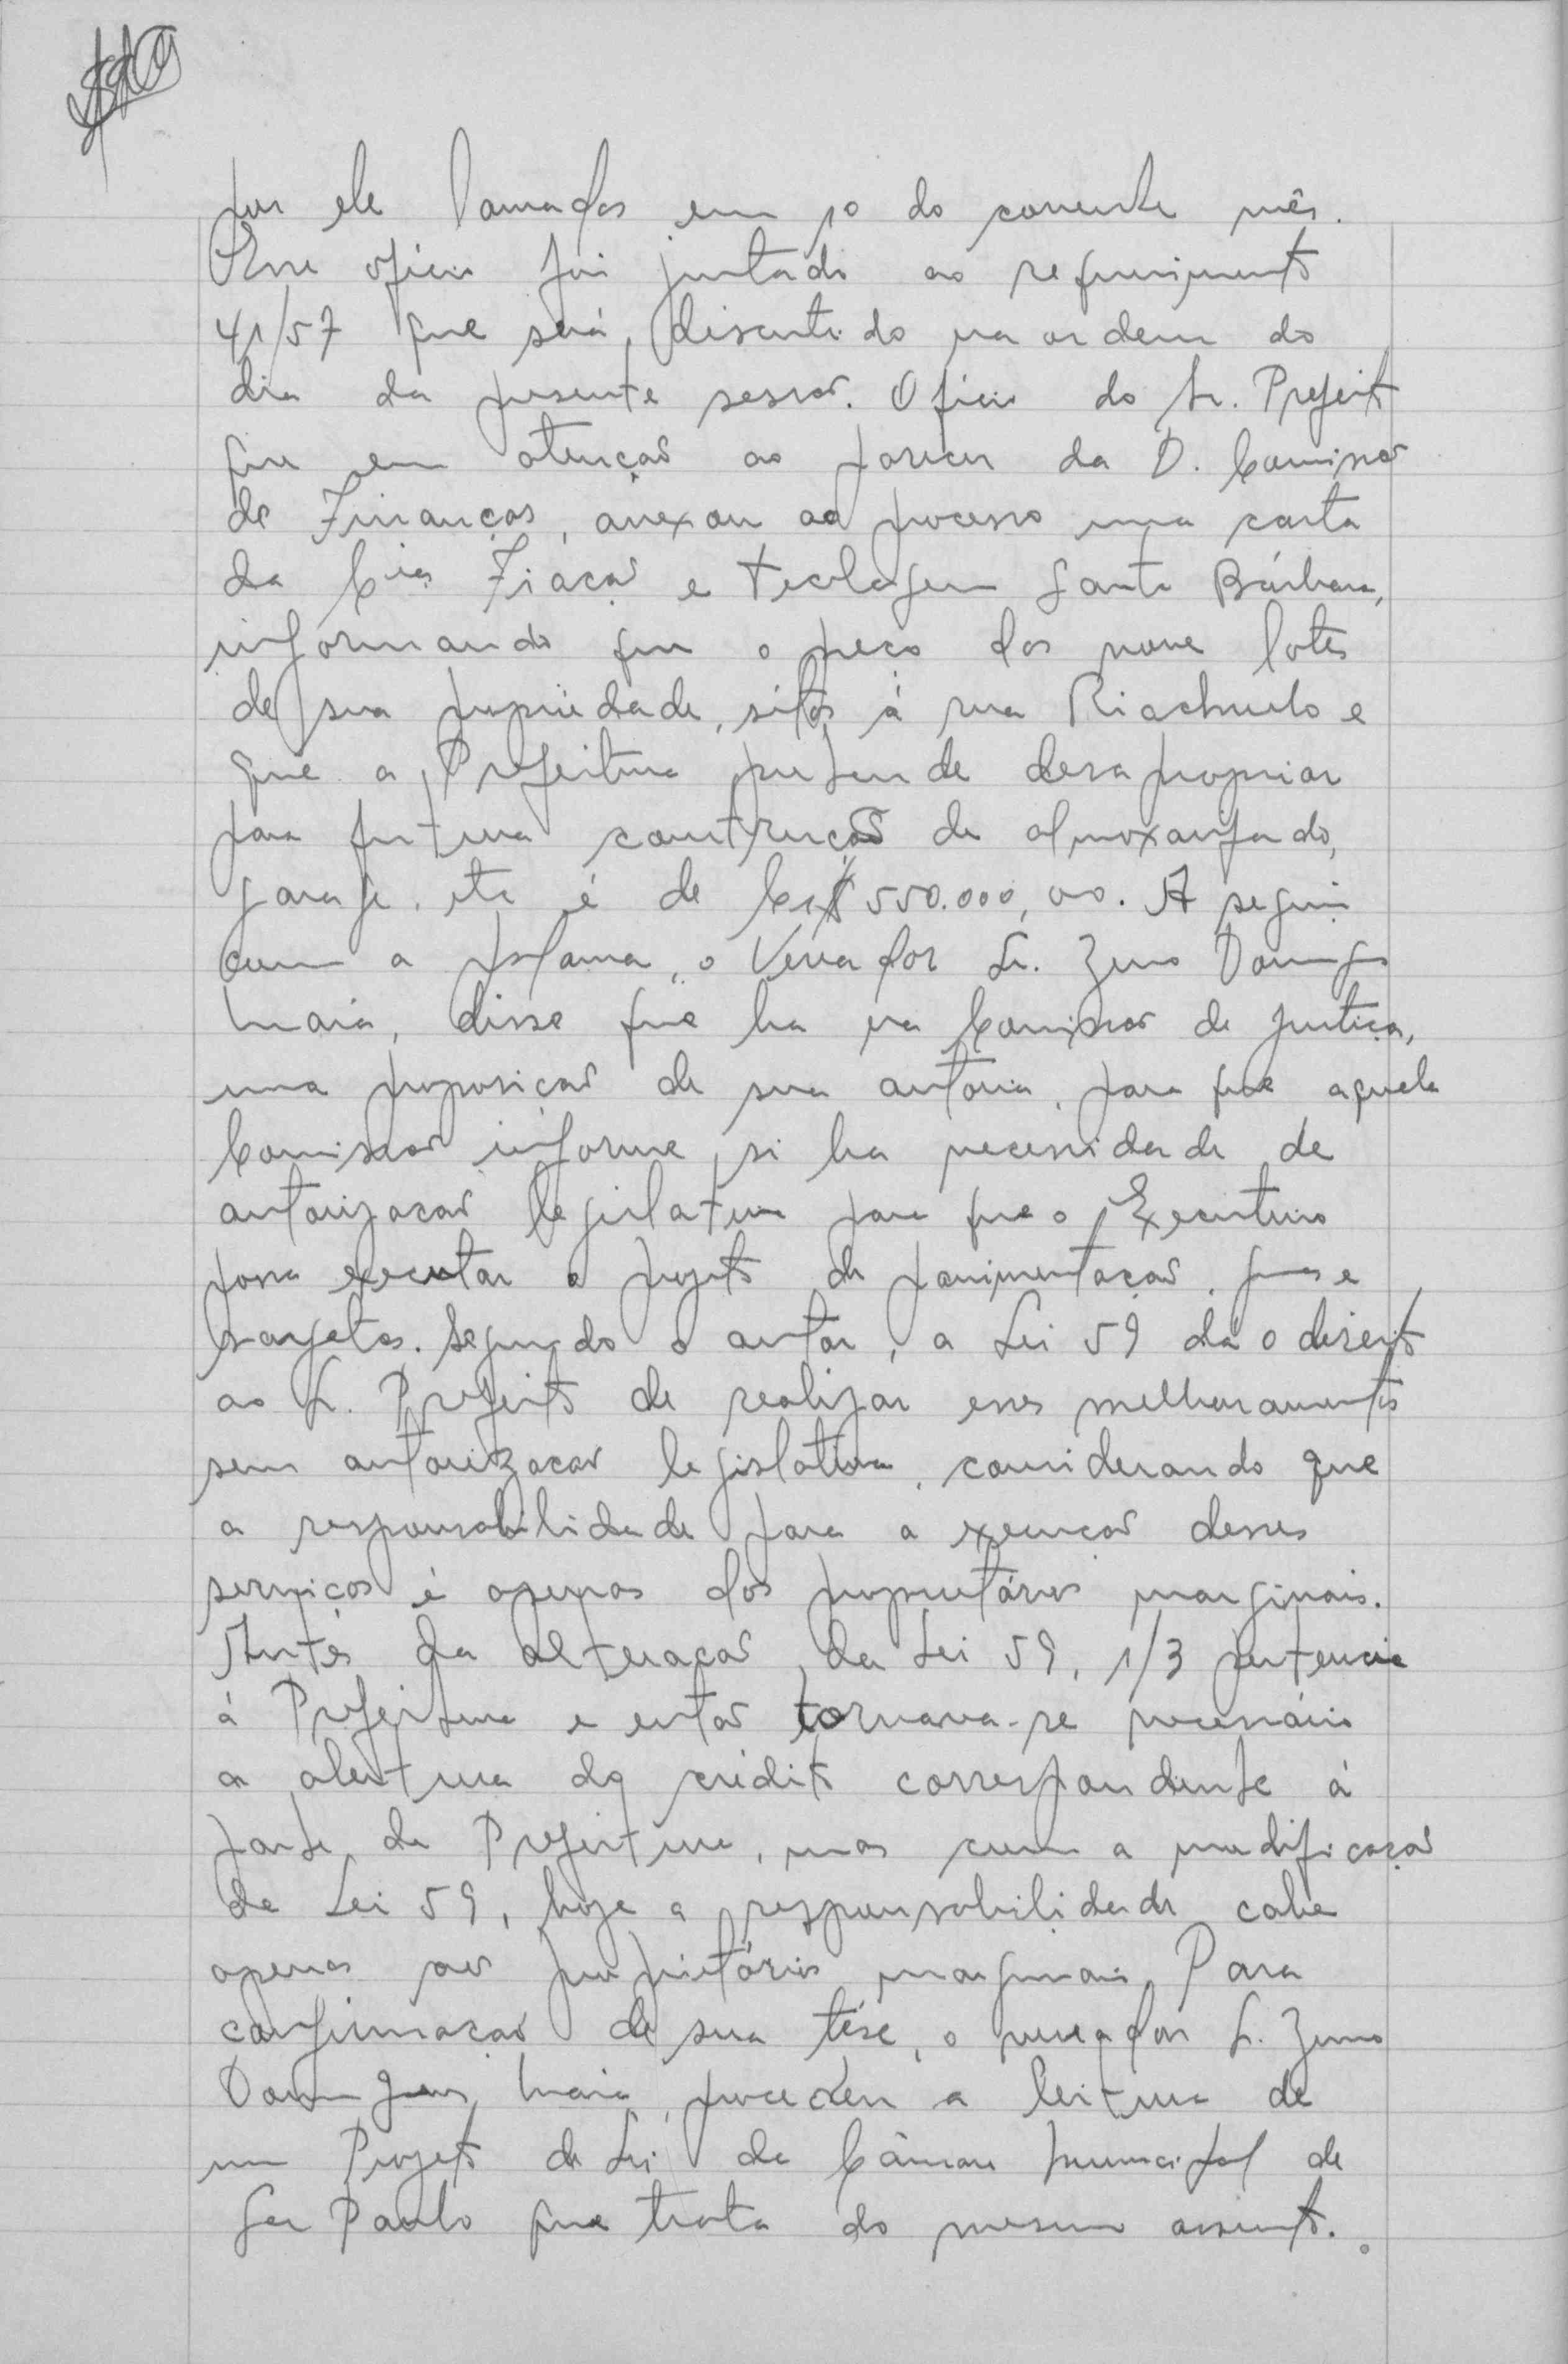 por ele lavrados em 10 do corrente mês.
Esse oficio foi juntado ao requerimento
41/57 que será discutido na ordem do
dia da presente sessão. Oficio do Sr. Prefeito
que em atenção ao parecer da D. Comissão
de Finanças, anexou ao processo uma carta
da Cia Fiação e Tecelagem Santa Bárbara,
informando que o preço dos nove lotes
de sua propriedade, sitos á rua Riachuelo e
que a Prefeitura pretende desapropriar
para futura construção de almoxarifado,
garage, etc é de Cr$ 550.000,00. A seguir
com a palavra, o Vereador Sr. Zeno Domingues
Maia, disse que ha na Comissão de Justiça,
uma proposição de sua autoria, para que aquela
Comissão informe si ha necessidade de
autorização legislativa para que o Executivo
possa executar o projeto de pavimentação, guias e
sarjetas. Segundo o autor, a Lei 59 dá o direito
ao Sr. Prefeito de realizar esses melhoramentos
sem autorização legislativa, considerando que
a responsabilidade para a execução desses
serviços é apenas dos proprietários marginais.
Antes da alteração da Lei 59, 1/3 pertencia
á Prefeitura e então tornava-se necessário
a abertura do crédito correspondente á
parte da Prefeitura, mas com a modificação
da Lei 59, hoje a responsabilidade cabe
apenas aos proprietários marginais. Para
confirmação de sua tése, o vereador Sr. Zeno
Domingues Maia, procedeu a leitura de
um Projeto de Lei da Câmara Municipal de
São Paulo que trata do mesmo assunto.